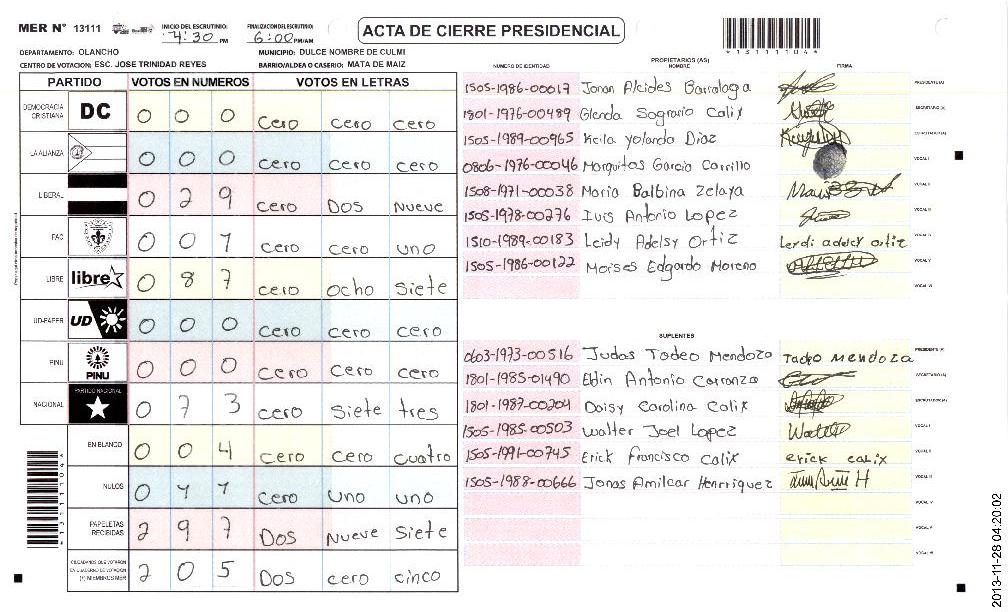 MER N° 13111
INICIO DEL ESCRUTINIO: 4:30 PM
FINALIZACION DEL ESCRUTINIO: 6:00 PM/AM
ACTA DE CIERRE PRESIDENCIAL
*1311104*
DEPARTAMENTO: OLANCHO
MUNICIPIO: DULCE NOMBRE DE CULMI
CENTRO DE VOTACION: ESC. JOSE TRINIDAD REYES
BARRIO/ALDEA O CASERIO: MATA DE MAIZ
PARTIDO VOTOS EN NUMEROS VOTOS EN LETRAS
DEMOCRACIA CRISTIANA DC 0 0 0 cero cero cero
LA ALIANZA 0 0 0 cero cero cero
LIBERAL 0 2 9 cero Dos Nueve
FAC 0 0 1 cero cero uno
LIBRE libre 0 8 7 cero ocho siete
UD-FAPER UD 0 0 0 cero cero cero
PINU PINU 0 0 0 cero cero cero
NACIONAL PARTIDO NACIONAL 0 7 3 cero siete tres
EN BLANCO 0 0 4 cero cero cuatro
NULOS 0 1 1 cero uno uno
PAPELETAS RECIBIDAS 2 9 7 Dos Nueve Siete
CIUDADANOS QUE VOTARON EN CUADERNO DE VOTACION (+) MIEMBROS MER 2 0 5 Dos cero cinco
*1311104*
PROPIETARIOS (AS)
NUMERO DE IDENTIDAD NOMBRE FIRMA
1505-1986-00017 Jonan Alcides Barralaga PRESIDENTE (A)
1801-1976-00489 Glenda Sogrario Calix SECRETARIO (A)
1505-1989-00965 Keila Yolanda Diaz ESCRUTADOR (A)
0806-1976-00046 Marquitos Garcia Carrillo VOCAL I
1508-1971-00038 Maria Balbina Zelaya VOCAL II
1505-1978-00276 Luis Antonio Lopez VOCAL III
1510-1989-00183 Leidy Adelsy Ortiz Leydi adelcy ortiz VOCAL IV
1505-1986-00122 Moises Edgardo Moreno VOCAL V
VOCAL VI
SUPLENTES
0603-1973-00516 Judas Tadeo Mendoza Tadeo Mendoza PRESIDENTE (A)
1801-1985-01490 Eldin Antonio Carranza SECRETARIO (A)
1801-1987-00204 Daisy Carolina Calix ESCRUTADOR (A)
1505-1985-00503 Walter Joel Lopez VOCAL I
1505-1991-00745 Erick Francisco Calix erick calix VOCAL II
1505-1988-00666 Jonas Amilcar Henrriquez VOCAL III
VOCAL IV
VOCAL V
VOCAL VI
2013-11-28 04:20:02